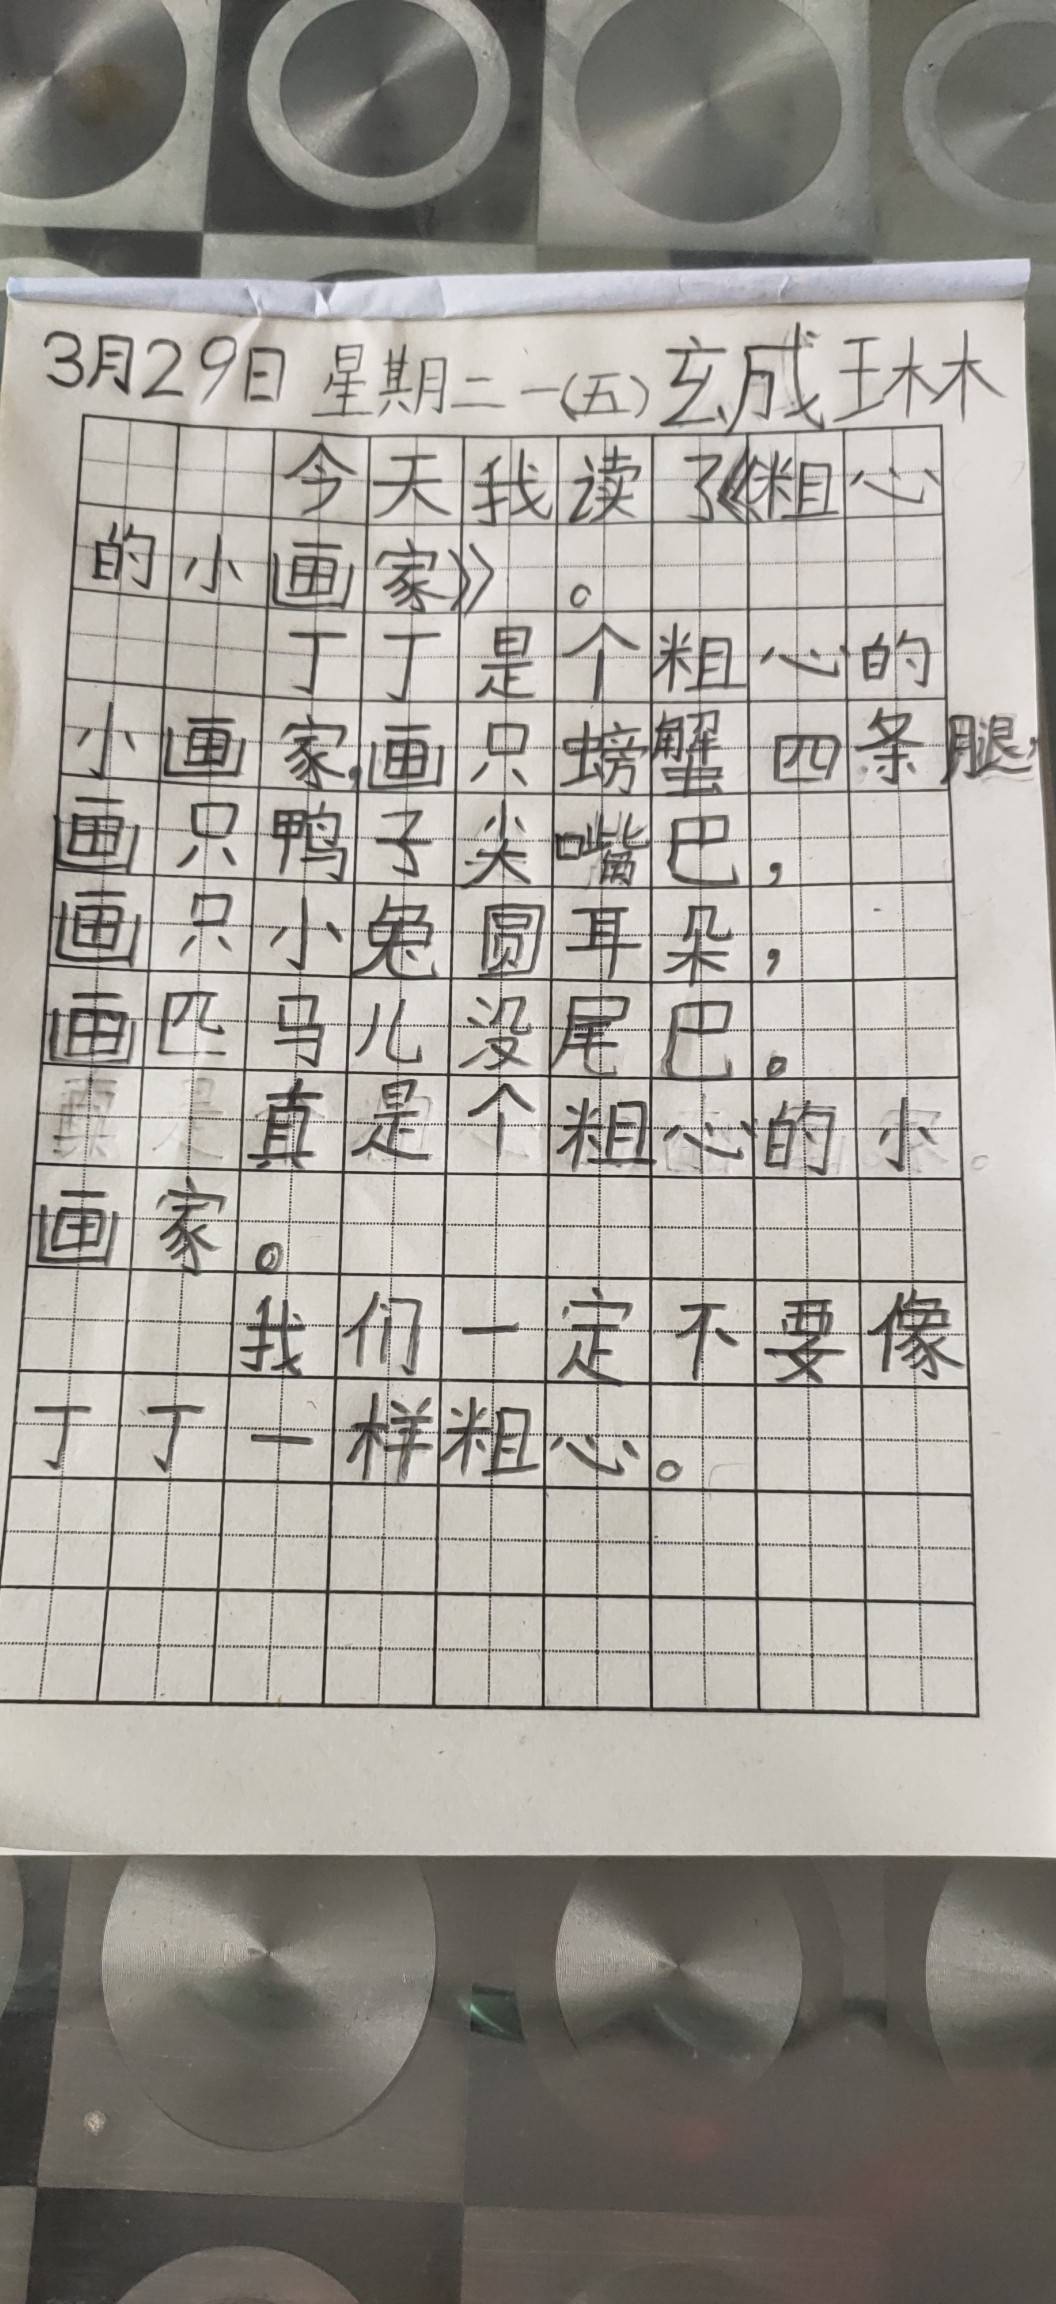 3月29日 星期二 一(五) 玄成琳
今天我读了《粗心
的小画家》。
丁丁是个粗心的
小画家,画只螃蟹四条腿,
画只鸭子尖嘴巴,
画只小兔圆耳朵,
画匹马儿没尾巴。
真是个粗心的小
画家。
我们一定不要像
丁丁一样粗心。